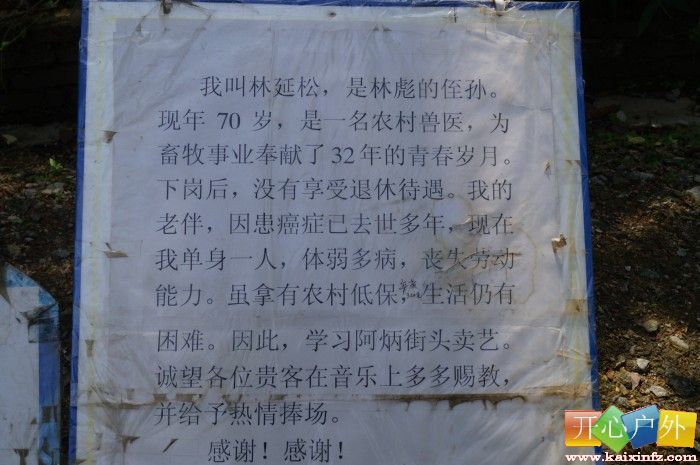 我叫林延松，是林彪的侄孙。
现年 70 岁，是一名农村兽医，为
畜牧事业奉献了 32 年的青春岁月。
下岗后，没有享受退休待遇。我的
老伴，因患癌症已去世多年，现在
我单身一人，体弱多病，丧失劳动
能力。虽拿有农村低保，生活仍有
困难。因此，学习阿炳街头卖艺。
诚望各位贵客在音乐上多多赐教，
并给予热情捧场。
感谢！感谢！
开心户外
www.kaixinfz.com